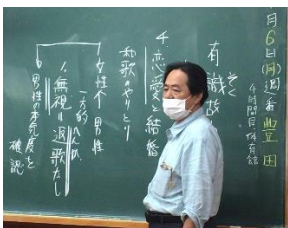 月6日(月)週番 豊田
4時間目、体育館
有識故
4 恋愛と結婚
和歌のやりとり
女性不 男性
一方的
無視 退歌なし
男性の本気度を
確認